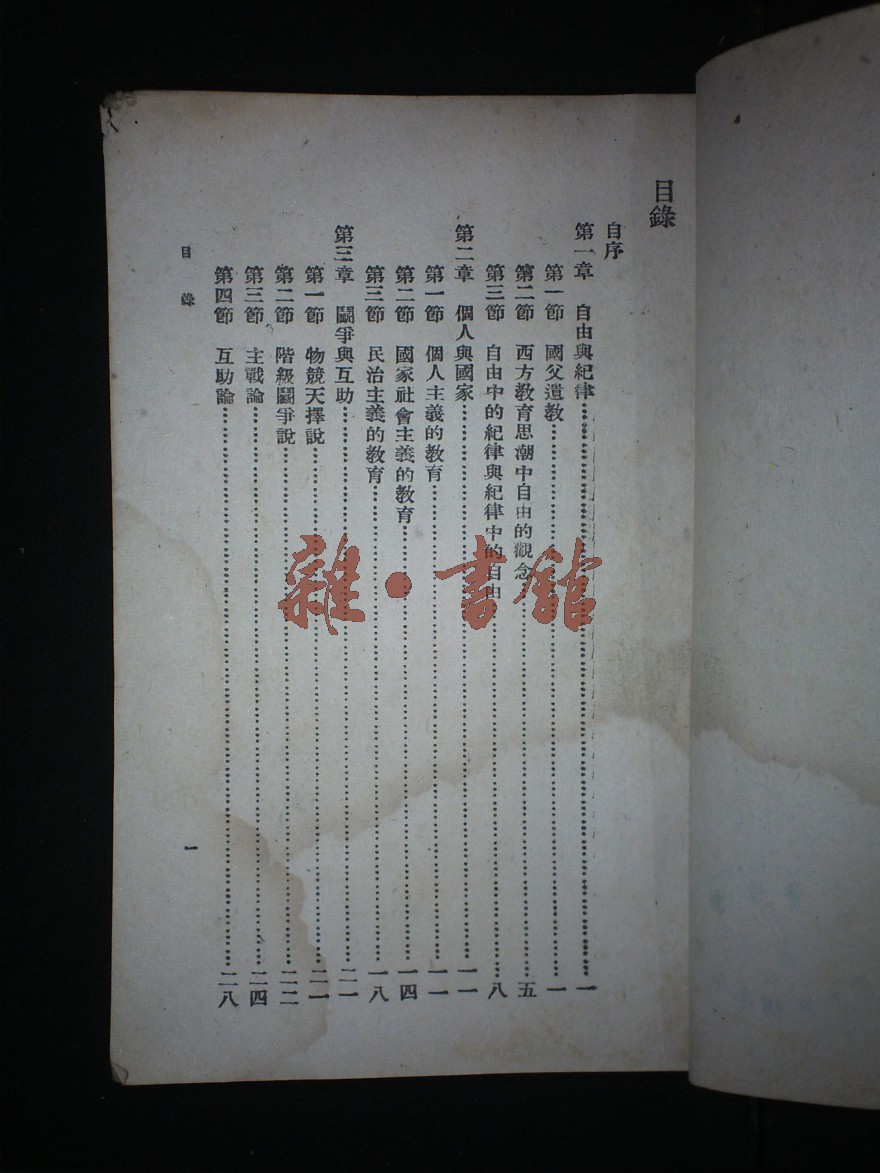 目錄
自序
第一章 自由與紀律……一
第一節 國父遺教……一
第二節 西方教育思潮中自由的觀念……五
第三節 自由中的紀律與紀律中的自由……八
第二章 個人與國家……一一
第一節 個人主義的教育……一一
第二節 國家社會主義的教育……一四
第三節 民治主義的教育……一八
第三章 鬭爭與互助……二一
第一節 物競天擇說……二一
第二節 階級鬭爭說……二二
第三節 主戰論……二四
第四節 互助論……二八
目錄
一
雜·書館